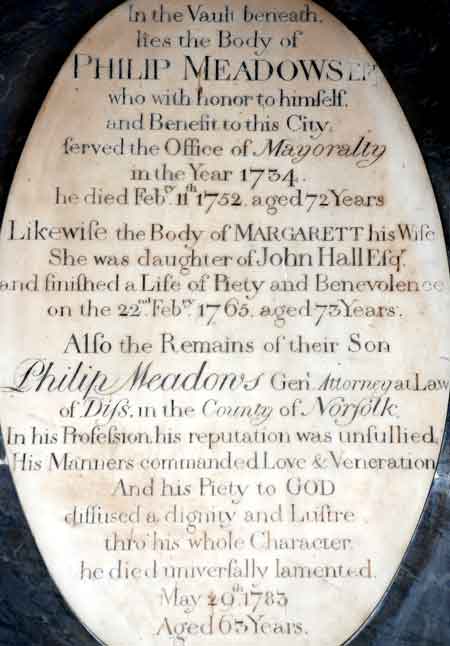 In the Vault beneath,
lies the Body of
PHILIP MEADOWS
who with honor to himſelf,
and Benefit to this City,
ſerved the Office of Mayoralty
in the Year 1734.
he died Febry. 11th 1752, aged 72 Years
Likewiſe the Body of MARGARETT his Wife
She was daughter of John Hall Esqr.
and finiſhed a Life of Piety and Benevolence
on the 22nd Febry. 1765, aged 73 Years.
Alſo the Remains of their Son
Philip Meadows Gent. Attorney at Law
of Diſs, in the County of Norfolk,
In his Profeſsion, his reputation was unſullied,
His Manners commanded Love & Veneration
And his Piety to GOD
diffused a dignity and Luſtre
thro' his whole Character.
he died univerſally lamented.
May 29th. 1783
Aged 63 Years.